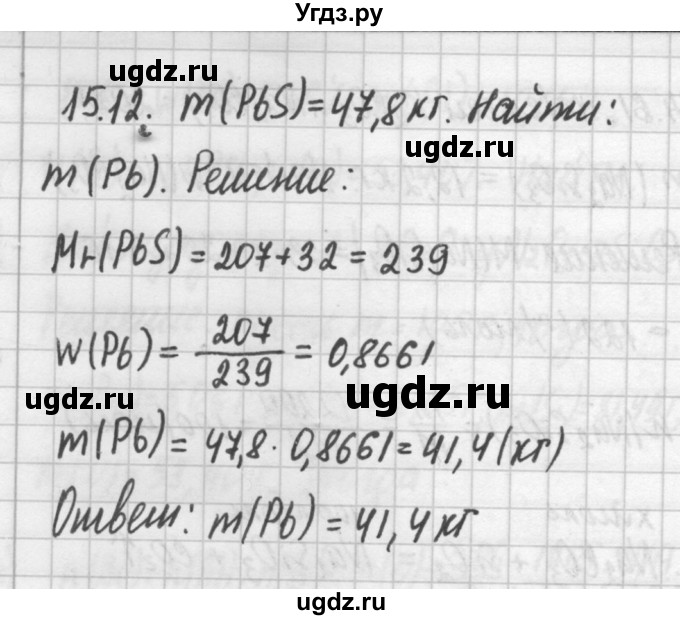 Угдз.ру
ugdz.ru
15.12. m(PbS)=47,8 кг. Найти:
ugdz.ru
m(Pb). Решение:
Mr(PbS)=207+32=239
W(Pb)= 207/239 = 0,8661
ugdz.ru ugdz.ru
m(Pb)= 47,8 · 0,8661=41,4(кг)
Ответ: m(Pb)=41,4 кг
ugdz.ru
ugdz.ru